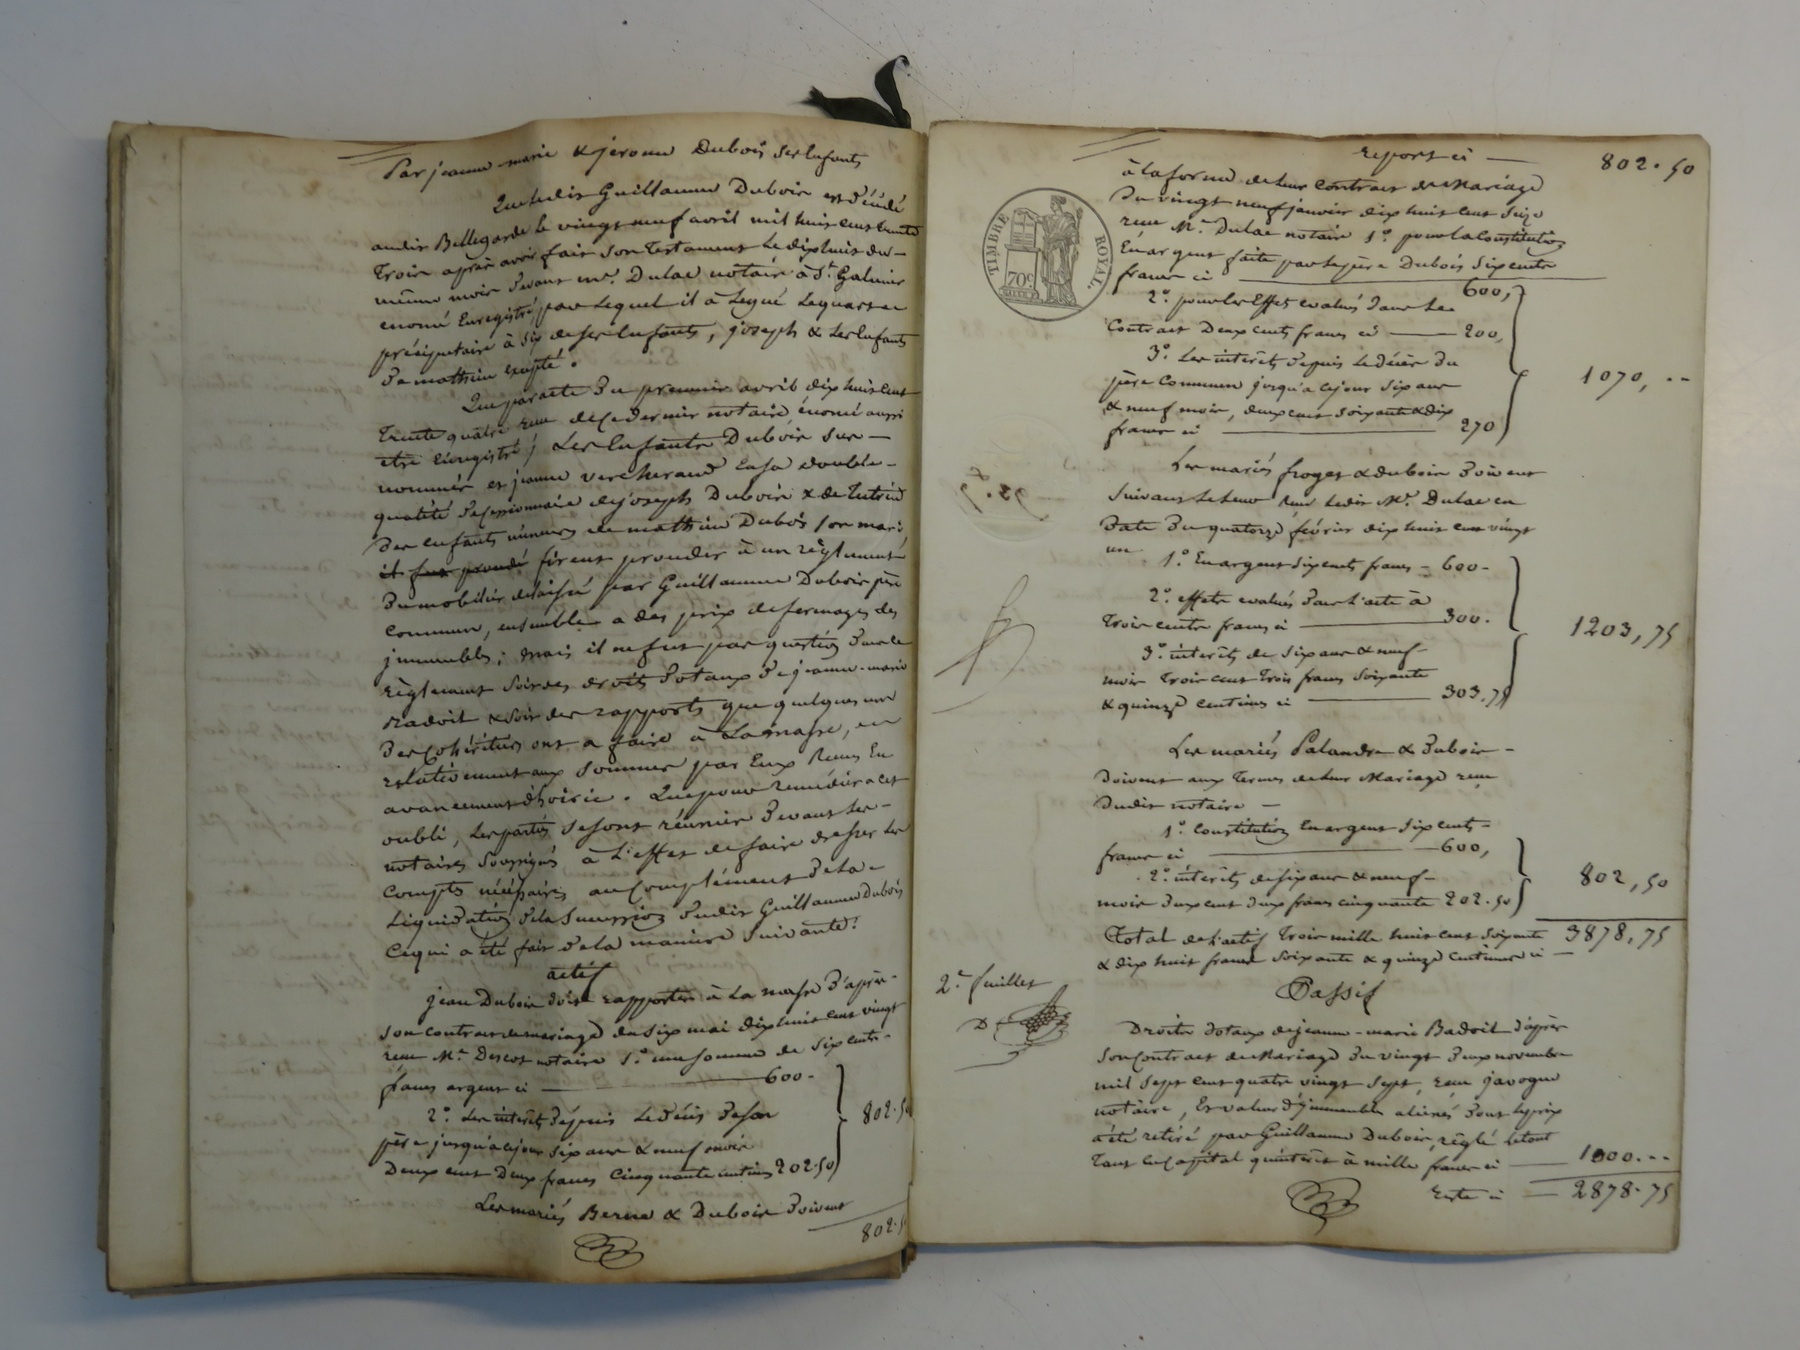 Par jeanne-marie & jerome Dubois ses Enfants
Que ledit Guillaume Dubois est décédé
audit Bellegarde le vingt neuf avril mil huit cent trente
Trois après avoir fait son testament le dix huit du
même mois devant Mr. Dulac notaire à St. Galmier
enoncé Enregistré, par lequel il a legué le quart en
préciputaire à six de ses Enfants, joseph & les Enfants
de mathieu excepté.
Que par acte du premier avril dix huit cent
Trente quatre reçu de ce dernier notaire énoncé aussi
etre Enregistré, Les Enfants Dubois sus
nommés et jeanne vercherand En sa double
qualité de cessionnaire de joseph Dubois & de Tutrice
des enfants mineurs de mathieu Dubois son mari
il fut procédé firent proceder à un règlement
du mobilier delaissé par Guillaume Dubois père
commun, ensemble a des prix de fermages des
immeubles; mais il ne fut pas question dans le
règlement soit des droits dotaux de jeanne-marie
Badoit & soit des rapports que quelques uns
des Cohéritiers ont a faire à la masse, et
relativement aux sommes par Eux Reçues En
avancement d'hoirie. Que pour remédier a cet
oubli, les parties se sont réunies devant les
notaires soussignés à l'effet de faire dresser les
Comptes nécessaires au Complément de la
Liquidation de la Succession dudit Guillaume Dubois
Ce qui a été fait de la manière suivante:
actif
jean Dubois doit rapporter à la masse d'après
son contrat de mariage du six mai dix huit cent vingt
reçu Me. Descot notaire 1.° une somme de six cents
francs argent ci — 600-
2.° Les interêts depuis le décès de son
père jusqu'à ce jour six ans & neuf mois
Deux cent Deux francs Cinquante centimes 202.50
802.50
Les mariés Berne & Dubois doivent
802.50
Report ci — 802.50
TIMBRE ROYAL.
70c
à la forme de leur Contrat de Mariage
du vingt neuf janvier dix huit cent seize
reçu Me. Dulac notaire 1.° pour la Constitution
En argent faite par le père Dubois six cents
francs ci — 600,
2.° pour les Effets evalués dans le
Contrat Deux cents francs ci — 200,
3.° Les interêts depuis le décès du
père Commun jusqu'à ce jour six ans
& neuf mois, deux cent soixante & dix
francs ci — 270
1070, --
Les mariés froget & dubois doivent
suivant le leur reçu ledit Me. Dulac en
date du quatorze février dix huit cent vingt
un 1.° En argent six cents francs - 600-
2.° effets evalués dans l'acte à
Trois cents francs ci — 300.
3.° interêts de six ans & neuf
mois Trois cent Trois francs soixante
& quinze centimes ci — 303.75
1203,75
Les mariés Palandre & dubois
doivent aux termes de leur Mariage reçu
dudit notaire —
1.° Constitution En argent six cents
francs ci — 600,
2.° interêts de six ans & neuf
mois deux cent deux francs cinquante 202.50
802,50
Total de l'actif Trois mille huit cent soixante 3878,75
& dix huit francs soixante & quinze centimes ci —
2.e feuillet
D
Passif
Droits dotaux de jeanne-marie Badoit d'après
son Contrat de Mariage du vingt deux novembre
mil sept cent quatre vingt sept, reçu javogue
notaire, Et valeur d'immeubles aliénés dont le prix
a été retiré par Guillaume Dubois, réglé le tout
tant en Capital qu'interêts à mille francs ci — 1000.--
Reste ci — 2878.75